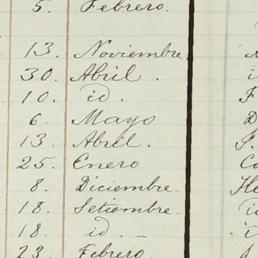 5. Febrero.
13. Noviembre.
30. Abril.
10. id.
6. Mayo
13. Abril.
25. Enero
8. Diciembre.
18. Setiembre.
18. id.
23. Febrero.